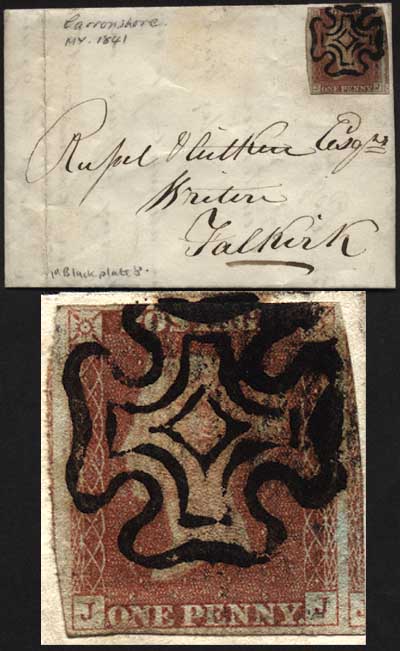 Carronshore.
MY. 1841
ONE PENNY
J J
Russel & Aitken Esqrs
Writers
Falkirk
1d Black plate 8.
POSTAGE
J ONE PENNY. J